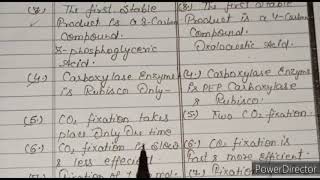 (3.) The first stable
Product is a 3-Carbon
Compound.
3-phosphoglyceric
Acid.
(4.) Carboxylase Enzyme
is Rubisco Only-
(5.) CO₂ fixation takes
place Only One time
(6.) CO₂ fixation is slow
& less effecient.
(3.) The first stable
Product is a 4-Carbon
Compound.
Oxaloacetic Acid.
(4.) Carboxylase Enzyme
is PEP Carboxylase
& Rubisco.
(5.) Two CO₂ fixation.
(6.) CO₂ fixation is
fast & more efficient.
PowerDirector